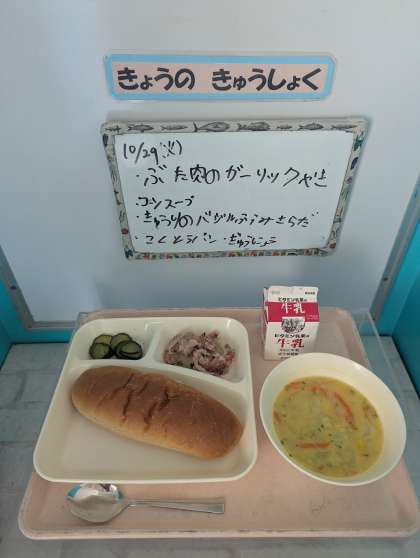 きょうの きゅうしょく
10/29(火)
・ぶた肉のガーリックやき
・コーンスープ
・きゅうりのバジルふうみさらだ
・こくとうパン ・ぎゅうにゅう
ビタミン乳業の
牛乳
ビタミン乳業の
牛乳